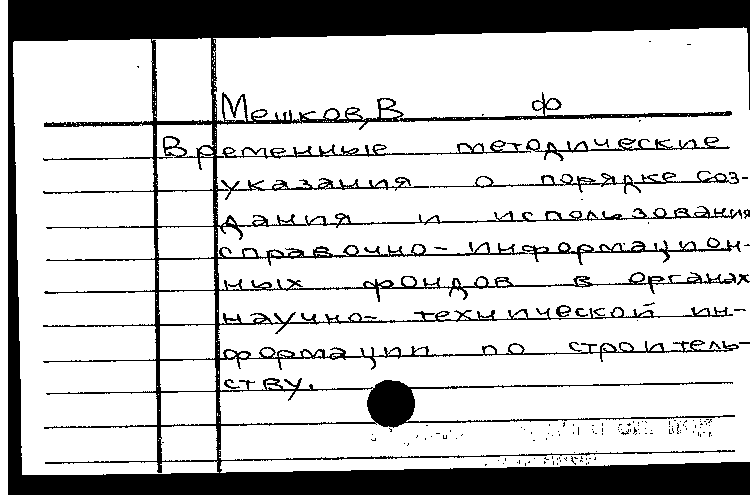 Мешков, В ф
Временные методические
указания о порядке соз-
дания и использования
справочно-информацион-
ных фондов в органах
научно-технической ин-
формации по строитель-
ству.